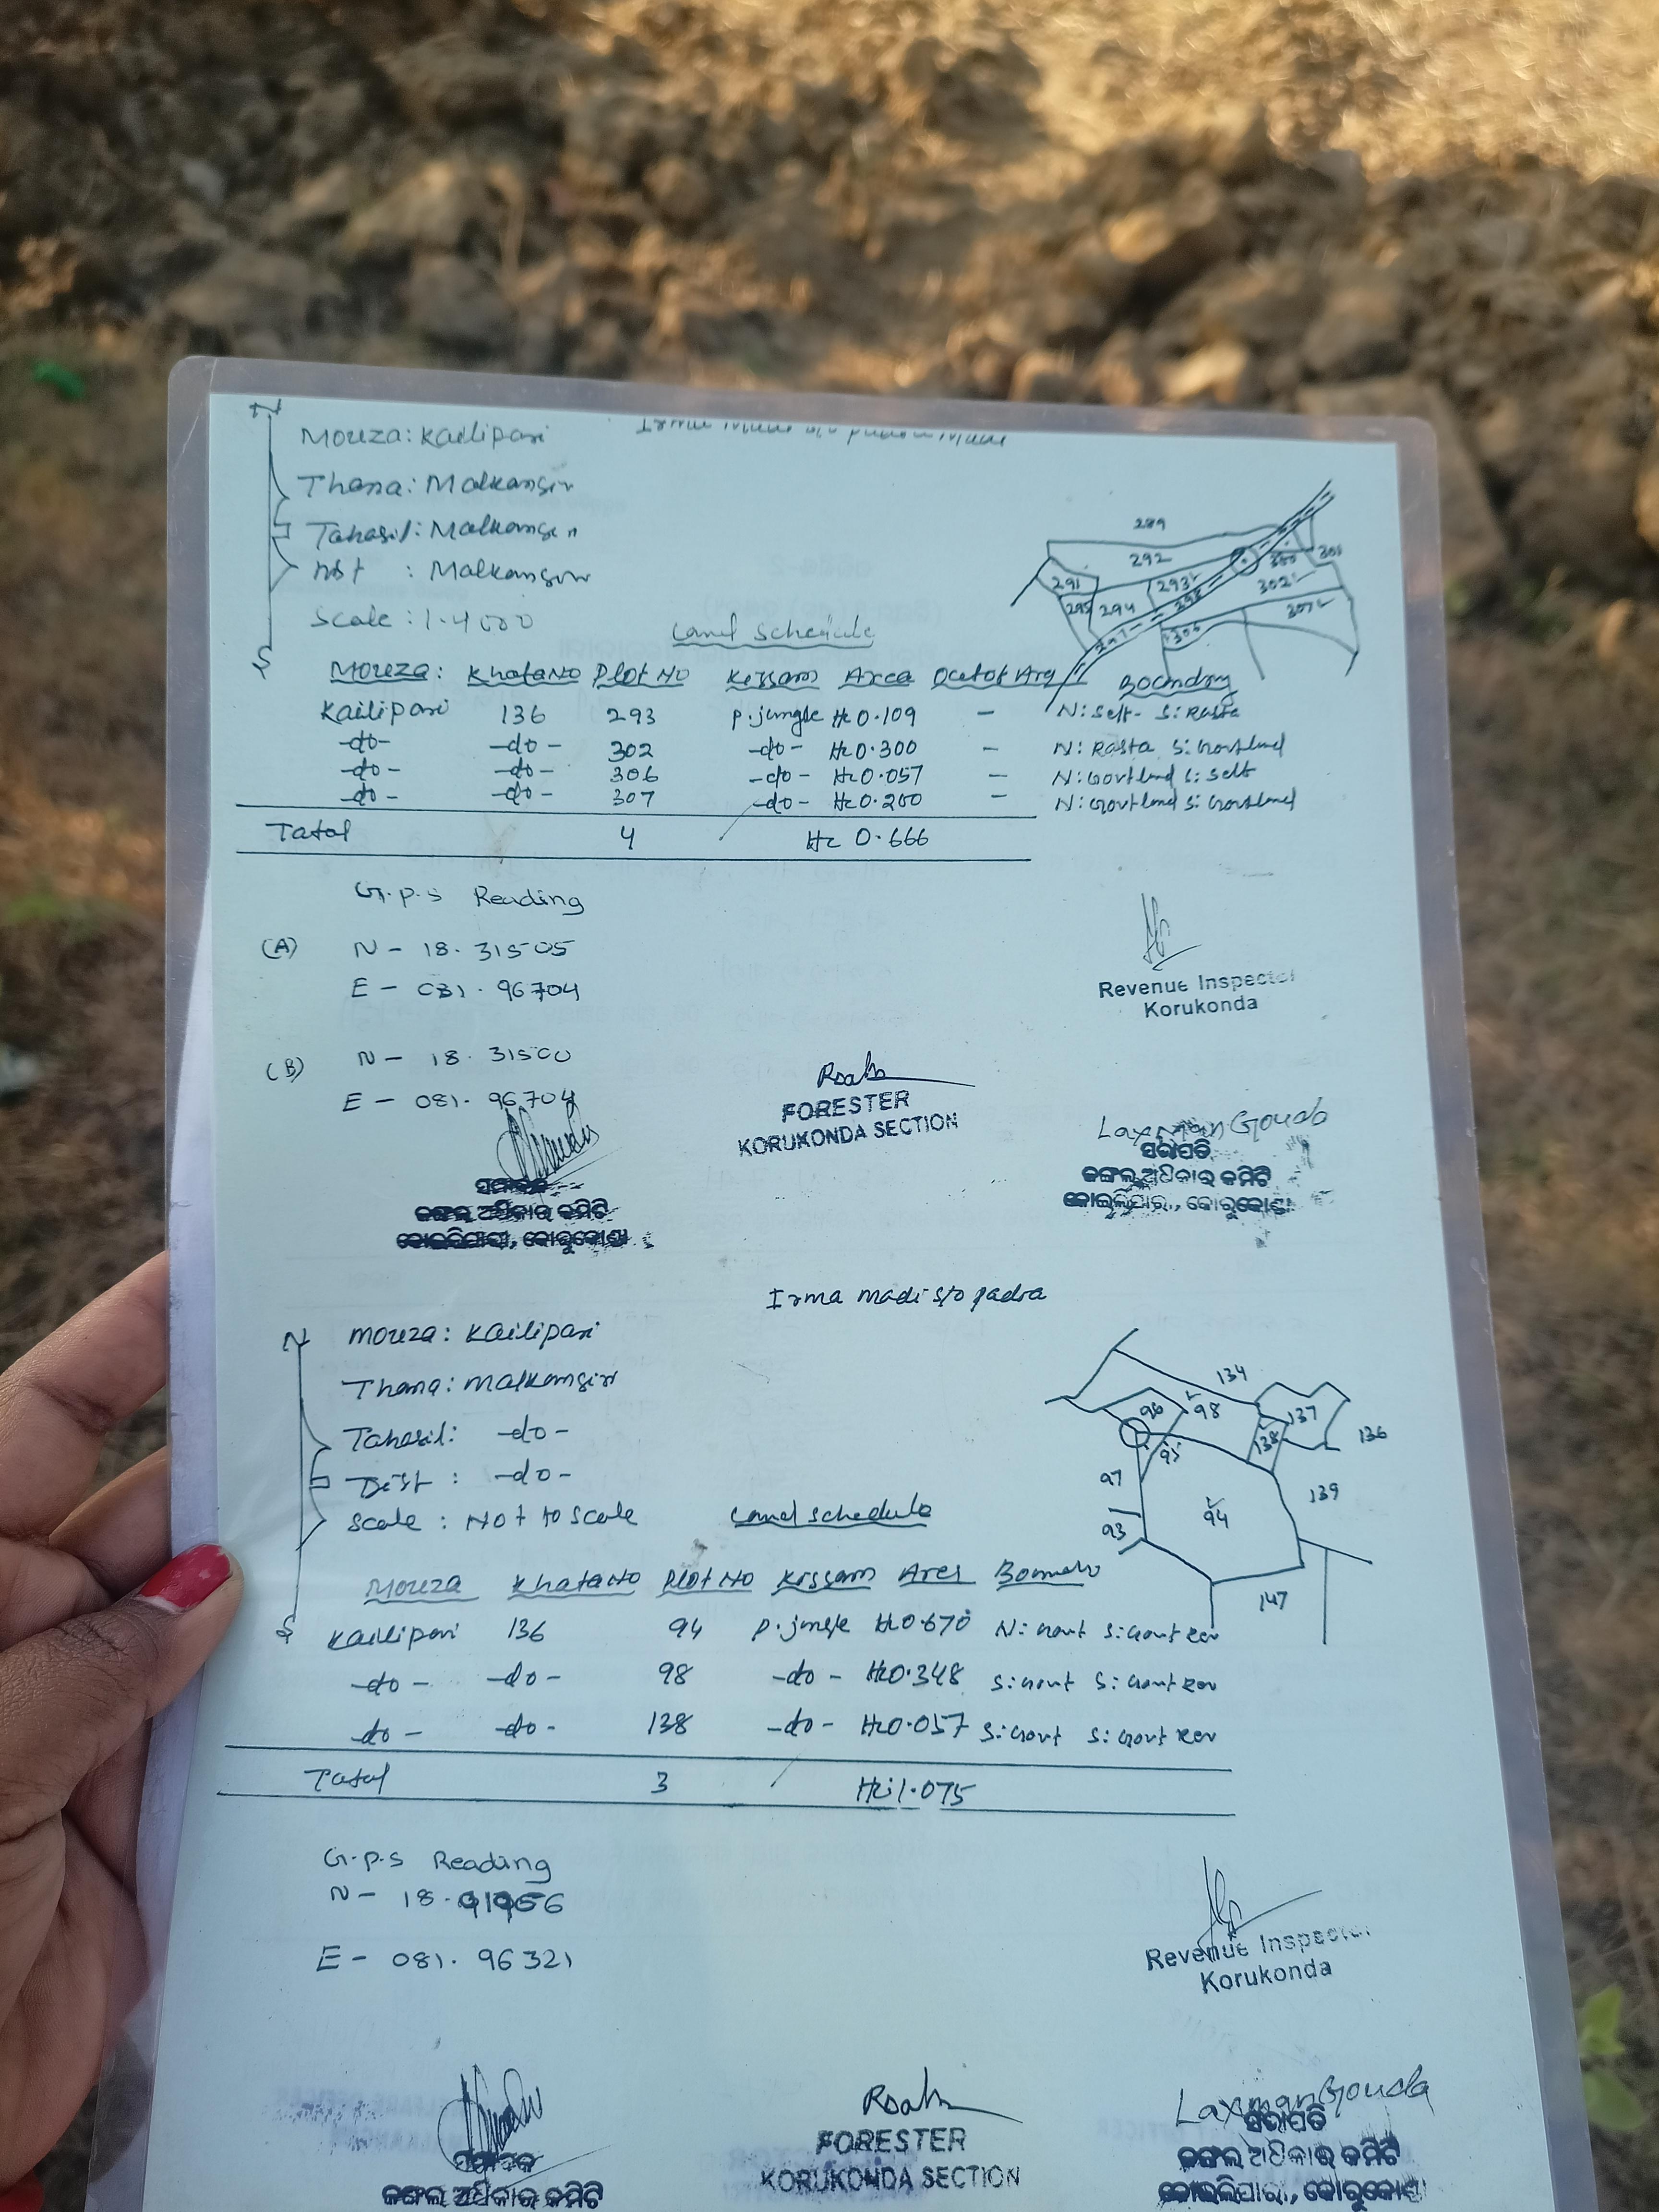 N
Mouza: Kailipari
Thana: Malkangiri
Tahasil: Malkangiri
Dist : Malkangiri
Scale : 1.4000
S
289
292
291
293
295 294
298
300
301
302
307
306
297
Land Schedule
Mouza: Khata No Plot No Kissam Area Boundry
Kailipari 136 293 P. jungle Hc 0.109 - N: Self- S: Rasta
-do- -do- 302 -do- Hc 0.300 - N: Rasta S: Govt land
-do- -do- 306 -do- Hc 0.057 - N: Govt land S: Self
-do- -do- 307 -do- Hc 0.200 - N: Govt land S: Govt land
Total 4 Hc 0.666
G.P.S Reading
(A) N - 18. 31505
E - 081. 96704
(B) N - 18. 31500
E - 081. 96704
Revenue Inspector
Korukonda
FORESTER
KORUKONDA SECTION
Laxman Gouda
ସଭାପତି
ଜଙ୍ଗଲ ଅଧିକାର କମିଟି
କୋଇଲିପାରୀ, କୋରୁକୋଣ୍ଡା
ସମ୍ପାଦକ
ଜଙ୍ଗଲ ଅଧିକାର କମିଟି
କୋଇଲିପାରୀ, କୋରୁକୋଣ୍ଡା
Irma madi s/o padra
N
Mouza: Kailipari
Thana: Malkangiri
Tahasil: -do-
Dist : -do-
Scale : Not to Scale
S
134
96 98
137
138
136
95
97
139
94
93
147
Land schedule
Mouza Khata No Plot No Kissam Area
Kailipari 136 94 P. jungle Hc 0.670 N: Govt S: Govt Rev
-do- -do- 98 -do- Hc 0.348 S: Govt S: Govt Rev
-do- -do- 138 -do- Hc 0.057 S: Govt S: Govt Rev
Total 3 Hc 1.075
G.P.S Reading
N - 18.
E - 081. 96321
Revenue Inspector
Korukonda
ସମ୍ପାଦକ
ଜଙ୍ଗଲ ଅଧିକାର କମିଟି
FORESTER
KORUKONDA SECTION
Laxman Gouda
ସଭାପତି
ଜଙ୍ଗଲ ଅଧିକାର କମିଟି
କୋଇଲିପାରୀ, କୋରୁକୋଣ୍ଡା